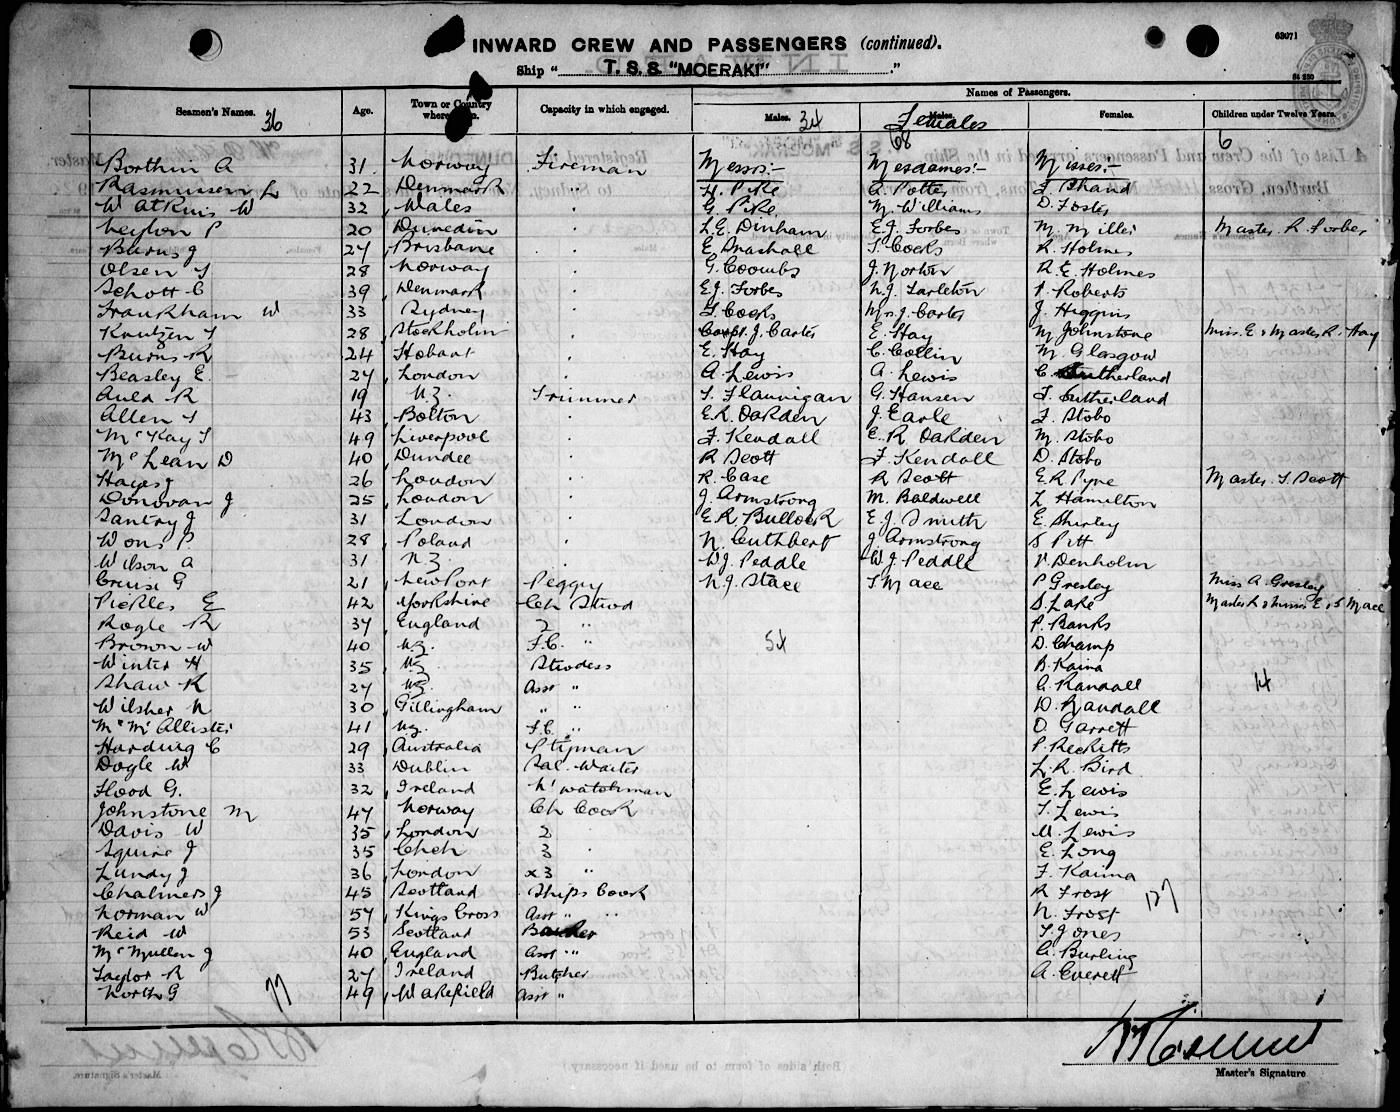 63071
INWARD CREW AND PASSENGERS (continued).
Ship " T.S.S. "MOERAKI" "
84 280
Names of Passengers.
Seamen's Names. 36 Age. Town or Country where Capacity in which engaged. Males. 34 Females 68 Females. Children under Twelve Years. 6
Borthin A 31 Norway Fireman Messrs:- Mesdames:- Misses:-
Rasmussen L 22 Denmark " H. Pike C. Potter F. Shand
Watkins W 32 Wales " G. Pike M. Williams D. Foster
Leyton P 20 Dunedin " L.E. Dinham E.J. Forbes M. Miller Master R. Forbes
Burns J 27 Brisbane " E. Mashall T. Cocks R. Holmes
Olsen T 28 Norway " G. Coombs J. Norton R.E. Holmes
Schott C 39 Denmark " E.J. Forbes N.J. Tarleton V. Roberts
Frankham W 33 Sydney " T. Cocks Mrs J. Carter J. Higgins
Knutzen T 28 Stockholm " Capt. J. Carter E. Hay M. Johnstone Miss. E & Master R. Hay
Burns R 24 Hobart " E. Hay C. Collin M. Glasgow
Beasley E. 27 London " A. Lewis A. Lewis C. Sutherland
Auld R 19 N.Z. Trimmer T. Flannigan G. Hansen F. Sutherland
Allen T 43 Bolton " E.R. Oakden J. Earle F. Stobo
McKay T 49 Liverpool " F. Kendall E.R. Oakden M. Stobo
McLean D 40 Dundee " R Scott F. Kendall D. Stobo
Hayes J 26 London " R. Case R Scott E.R Pyne Master T. Scott
Donovan J 25 London " J. Armstrong M. Baldwell L Hamilton
Santry J 31 London " E.R. Bullock E.J. Smith E. Shirley
Wons P. 28 Poland " N. Cuthbert J. Armstrong S Pitt
Wilson A 31 N.Z " W.J. Peddle W.J. Peddle V. Denholm
Cruise G 21 Newport Peggy N.J. Stace T. Mace P Gresley Miss A. Gresley
Pickles E 42 Yorkshire Ch Stwd S. Lake Master R & Misses E & S Mace
Rogle R 37 England 2 " P. Banks
Brown W 40 N.Z. F.C. " 54 D. Champ
Winter H 35 N.Z. Stwdess B. Kaina
Shaw R 27 N.Z. Asst " C. Randall 14
Wilsher N 30 Gillingham " " D. Randall
Mrs McAllister 41 N.Z. F.C. " O. Garrett
Harding C 29 Australia P. Reckitts
Dogle W 33 Dublin Sal. Waiter L.R. Bird
Flood G. 32 Ireland N' watchman E. Lewis
Johnstone M 47 Norway Ch Cook T. Lewis
Davis W 35 London 2 " M. Lewis
Squire J 35 Chch 3 " E. Long
Lundy J 36 London x3 " F. Kaina
Chalmers J 45 Scotland Ships Cook R Frost
Norman W 57 Kings Cross Asst " " N. Frost 127
Reid W 53 Scotland T. Jones
McMullen J 40 England Asst " A. Burling
Taylor R 27 Ireland Butcher A. Everett
North G 49 Wakefield Asst "
77
Master's Signature.